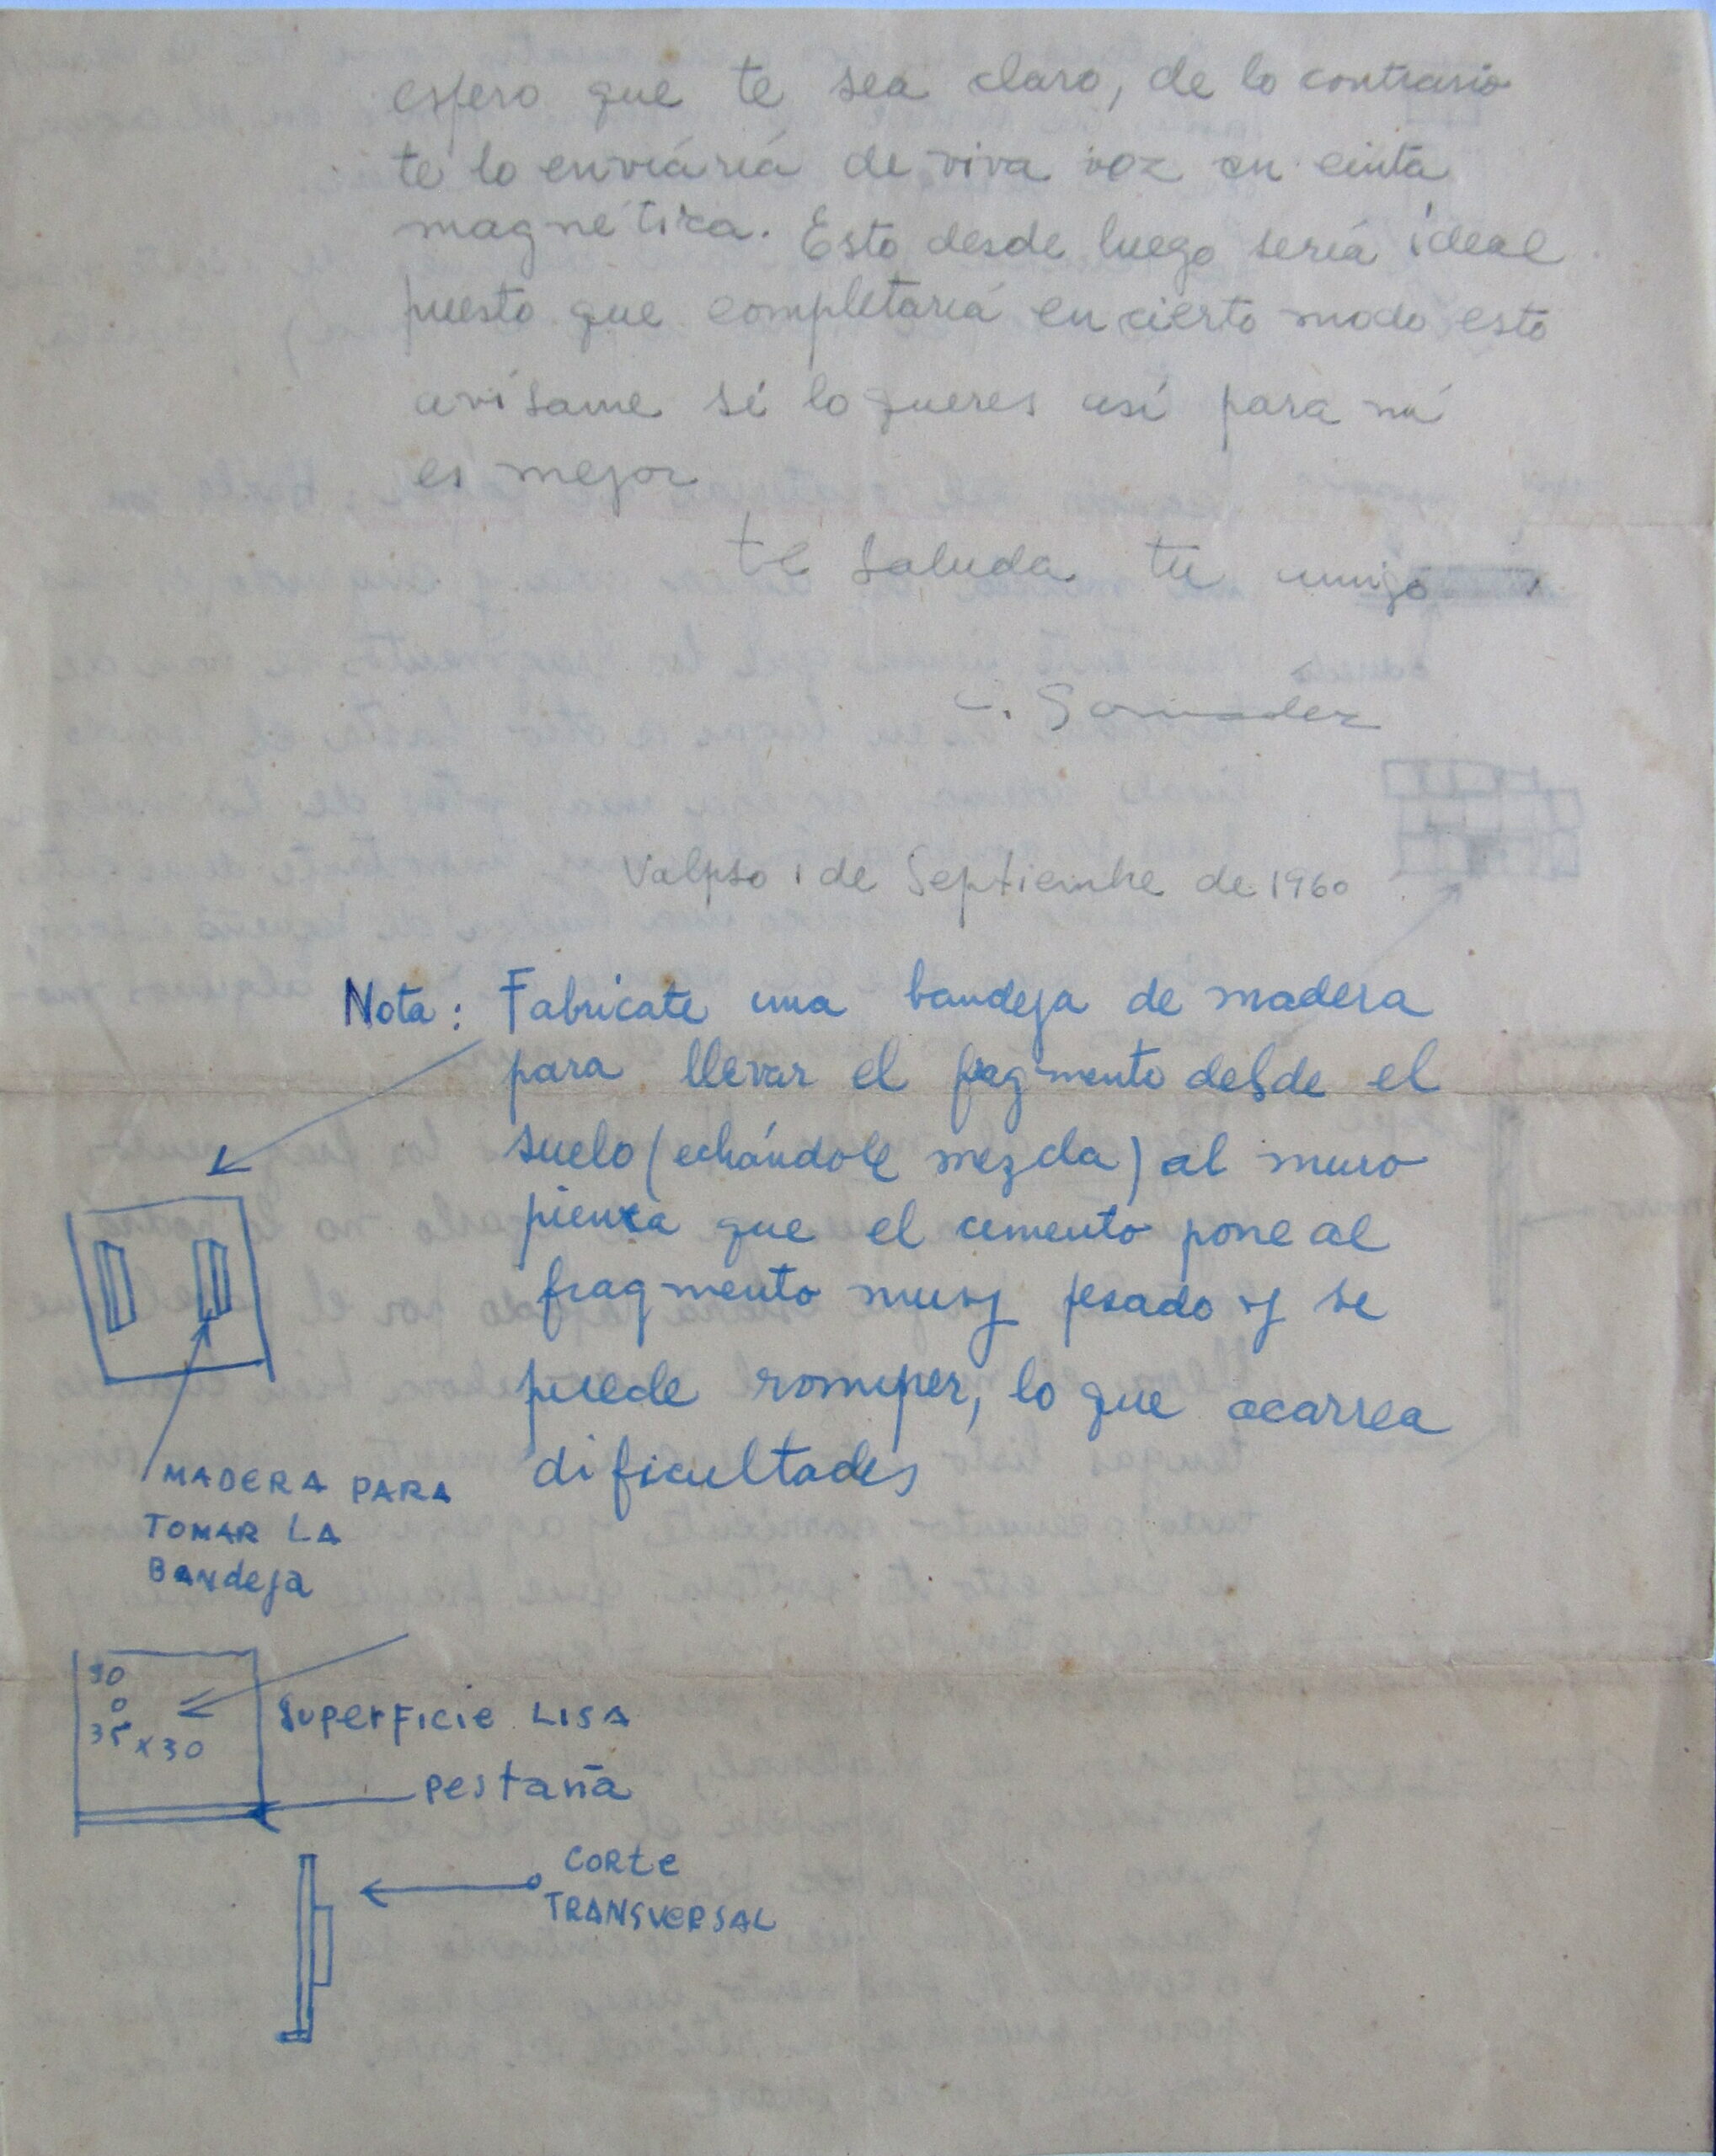 espero que te sea claro, de lo contrario
te lo enviaría de viva voz en cinta
magnética. Esto desde luego sería ideal
puesto que completaría en cierto modo esto
avísame si lo queres así para mí
es mejor
te saluda tu amigo
Valpso 1 de Septiembre de 1960
Nota: Fabricate una bandeja de madera
para llevar el fragmento desde el
suelo (echándole mezcla) al muro
pienza que el cemento pone al
fragmento muy pesado y se
puede romper, lo que acarrea
dificultades
MADERA PARA
TOMAR LA
BANdeja
30
o
35 x 30
Superficie LISA
pestaña
CORte
TRANSVeRSAL